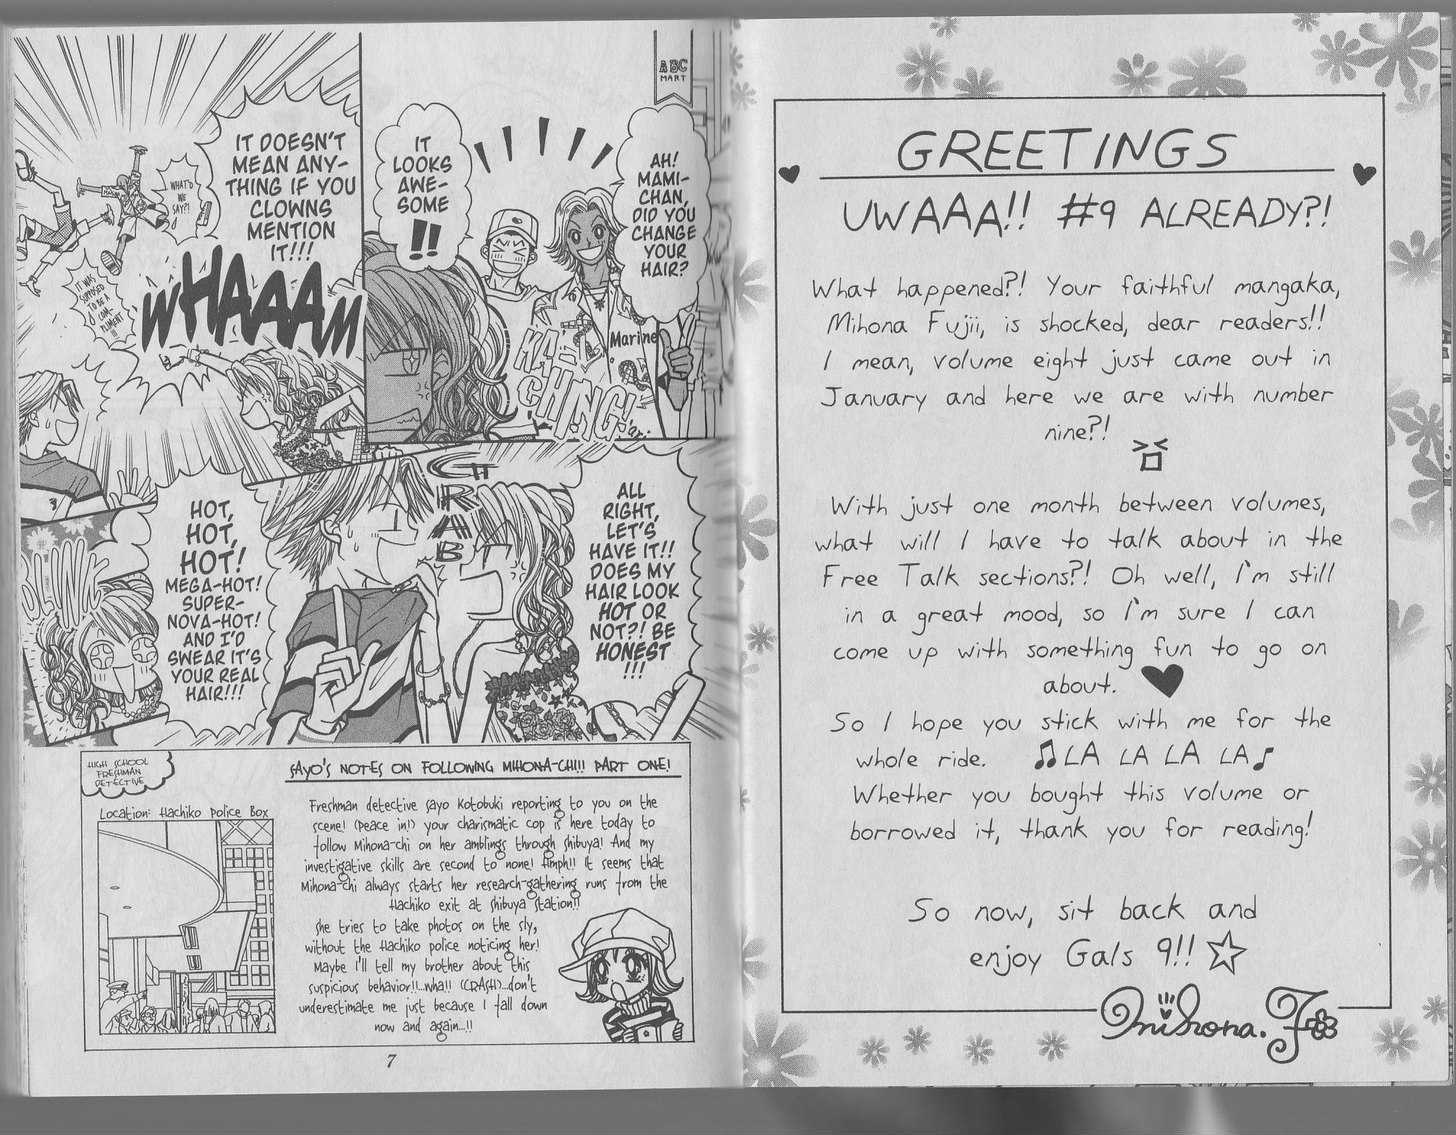 IT DOESN'T
MEAN ANY-
THING IF YOU
CLOWNS
MENTION
IT!!!
WHAT'D
WE
SAY?!
IT WAS
SUPPOSED
TO BE A
COM-
PLIMENT
!!!
WHAAAM
IT
LOOKS
AWE-
SOME
!!
ABC
MART
AH!
MAMI-
CHAN,
DID YOU
CHANGE
YOUR
HAIR?
Marine
KA-
CHING!
GRAB
ALL
RIGHT,
LET'S
HAVE IT!!
DOES MY
HAIR LOOK
HOT OR
NOT?! BE
HONEST
!!!
HOT,
HOT,
HOT!
MEGA-HOT!
SUPER-
NOVA-HOT!
AND I'D
SWEAR IT'S
YOUR REAL
HAIR!!!
HIGH SCHOOL
FRESHMAN
DETECTIVE
SAYO'S NOTES ON FOLLOWING MIHONA-CHI!! PART ONE!
Location: Hachiko Police Box
Freshman detective Sayo Kotobuki reporting to you on the
scene! (Peace in!) Your charismatic cop is here today to
follow Mihona-chi on her amblings through Shibuya! And my
investigative skills are second to none! Hmph!! It seems that
Mihona-chi always starts her research-gathering runs from the
Hachiko exit at Shibuya Station!!
She tries to take photos on the sly,
without the Hachiko police noticing her!
Maybe I'll tell my brother about this
suspicious behavior!!...Wha!! (CRASH)...don't
underestimate me just because I fall down
now and again...!!
7
GREETINGS
UWAAA!! #9 ALREADY?!
What happened?! Your faithful mangaka,
Mihona Fujii, is shocked, dear readers!!
I mean, volume eight just came out in
January and here we are with number
nine?!
With just one month between volumes,
what will I have to talk about in the
Free Talk sections?! Oh well, I'm still
in a great mood, so I'm sure I can
come up with something fun to go on
about. ♥
So I hope you stick with me for the
whole ride. ♫LA LA LA LA♪
Whether you bought this volume or
borrowed it, thank you for reading!
So now, sit back and
enjoy Gals 9!!☆
Mihona. F